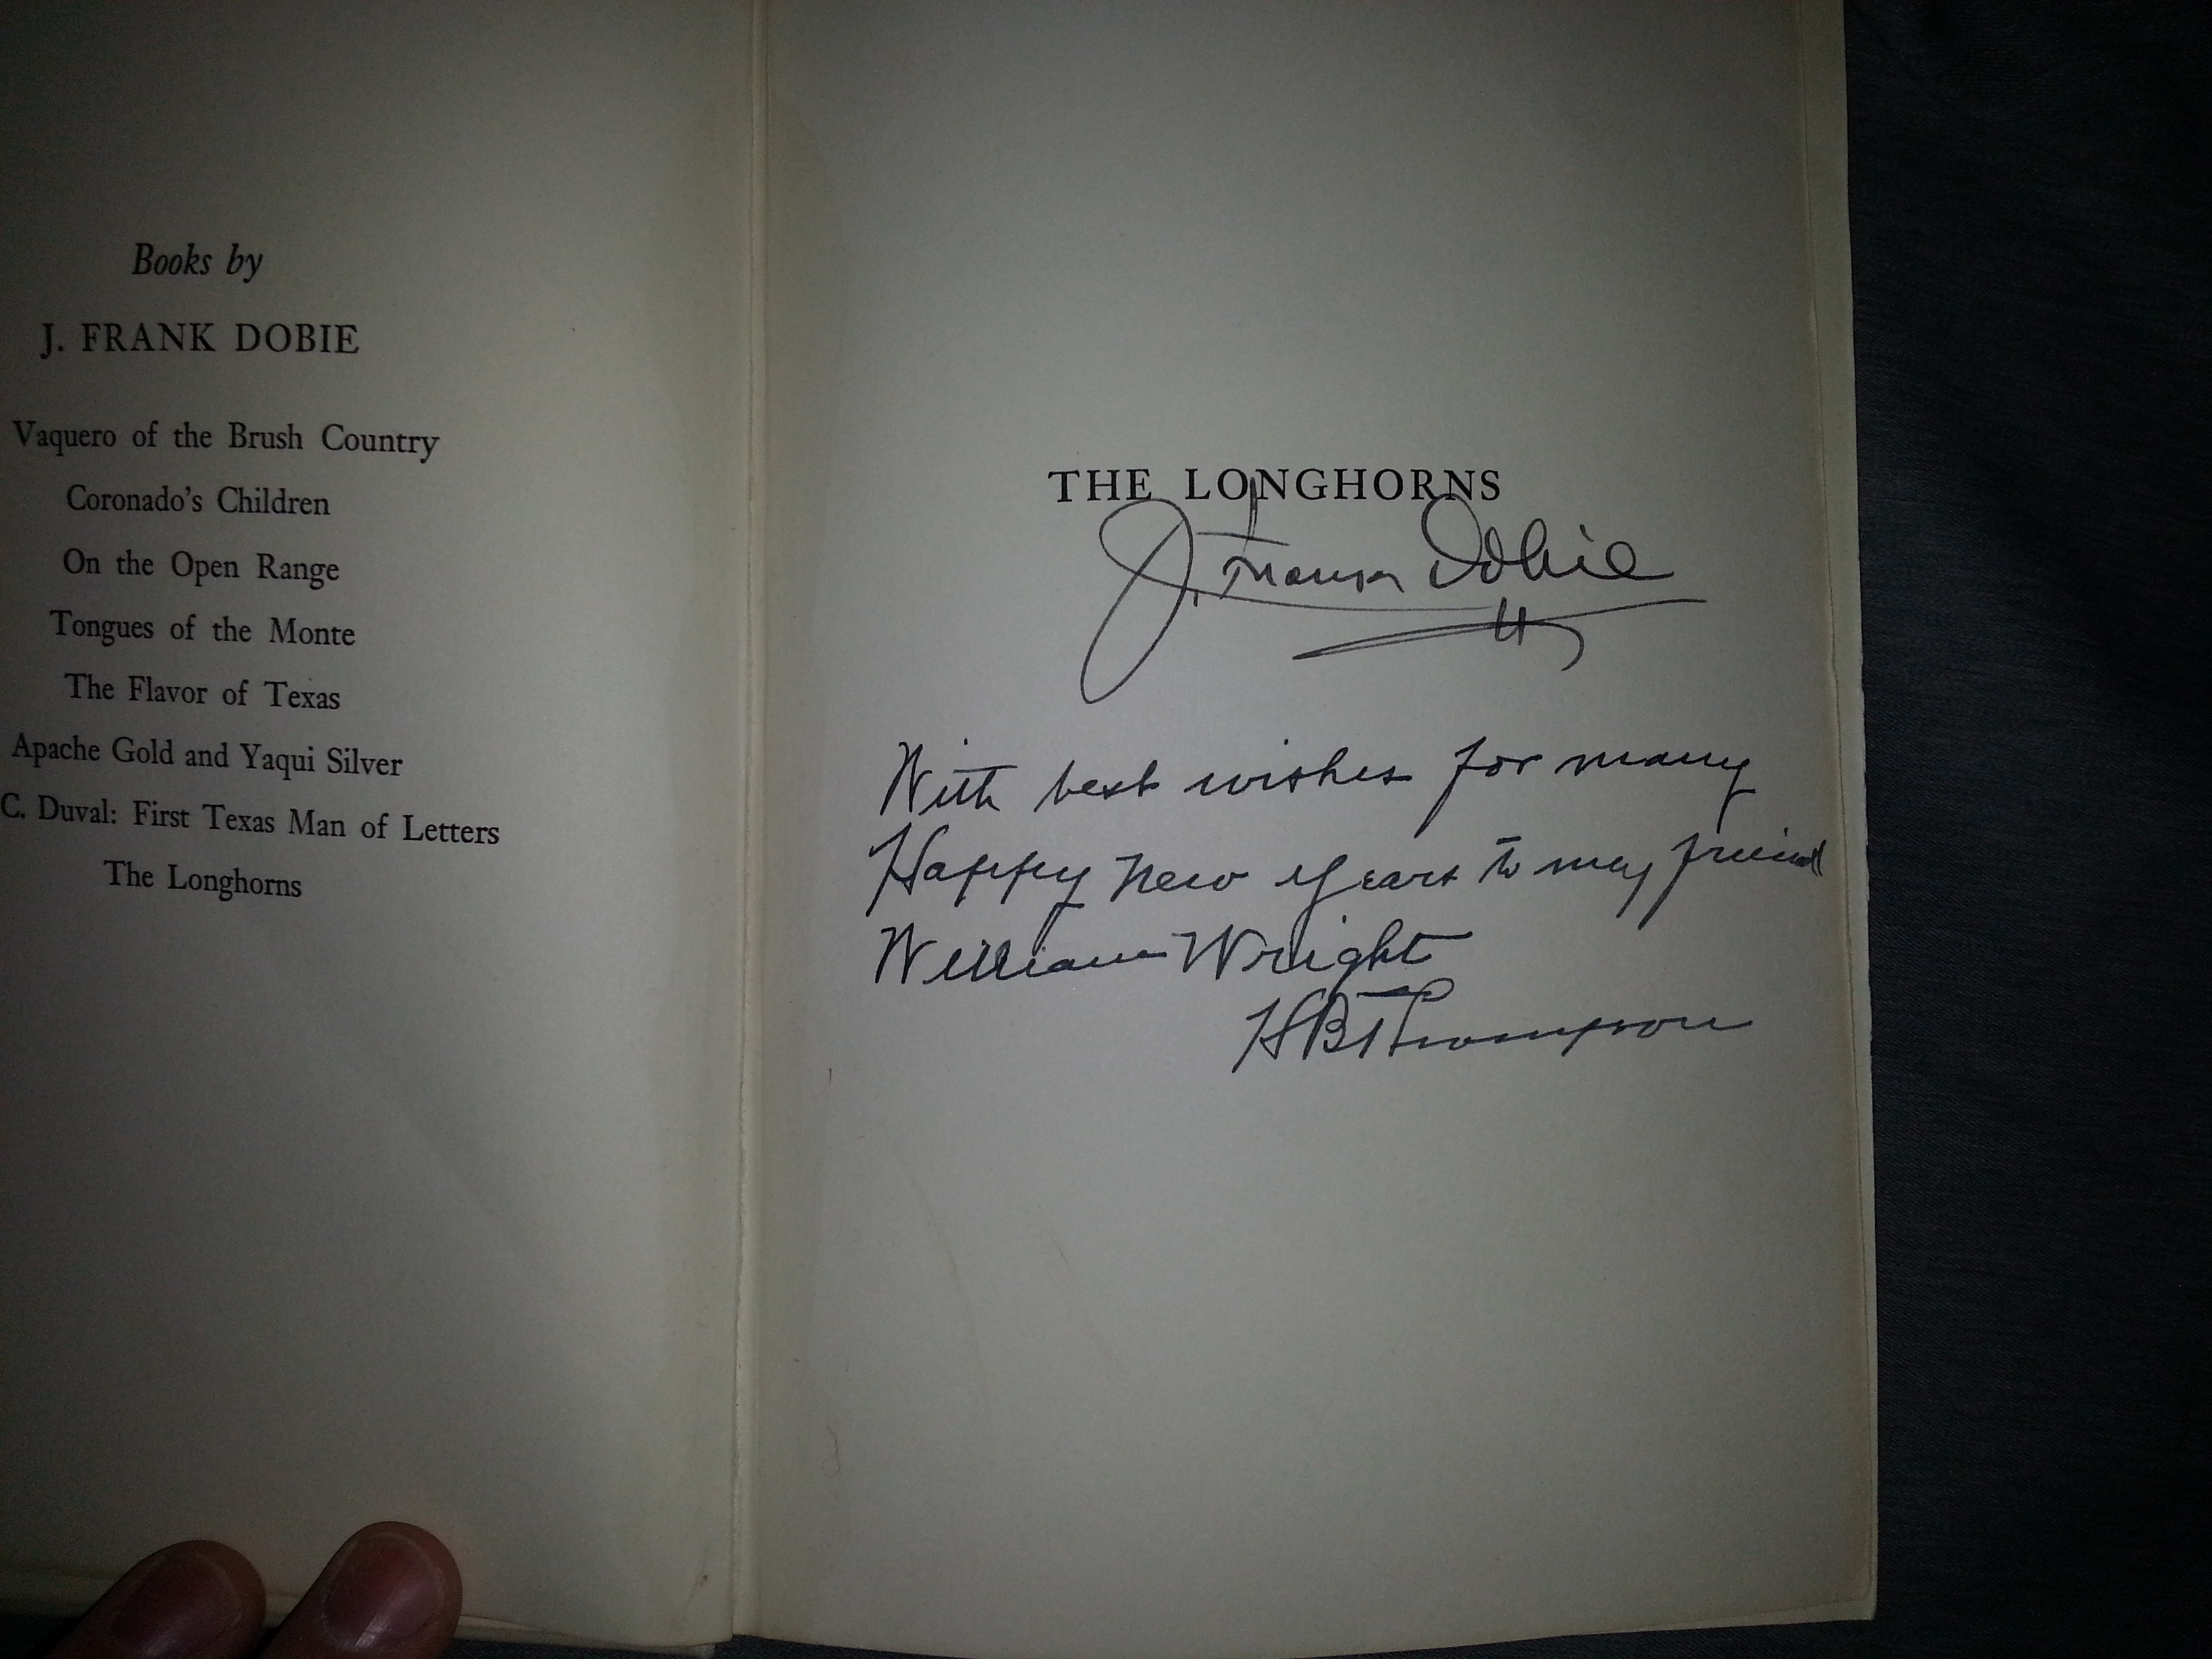 Books by
J. FRANK DOBIE
Vaquero of the Brush Country
Coronado's Children
On the Open Range
Tongues of the Monte
The Flavor of Texas
Apache Gold and Yaqui Silver
C. Duval: First Texas Man of Letters
The Longhorns
THE LONGHORNS
J. Frank Dobie
With best wishes for many
Happy New Years to my friend
William Wright
HB Thompson